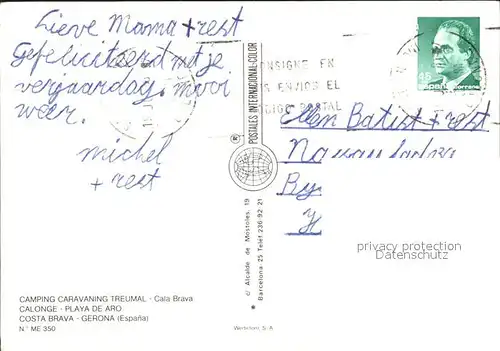 Lieve Mama + rest
Gefeliciteerd met je
verjaardag. mooi
weer.
michel
+ rest
CONSIGNE EN
ENVIOS EL
POSTAL
45
España
Ellen Batist + rest
POSTALES INTERNACIONAL-COLOR
c/ Alcalde de Mostoles, 19
Barcelona-25 Telef. 236 92 21
privacy protection
DELCAMPE
CAMPING CARAVANING TREUMAL - Cala Brava
CALONGE - PLAYA DE ARO
COSTA BRAVA - GERONA (España)
N.° ME 350